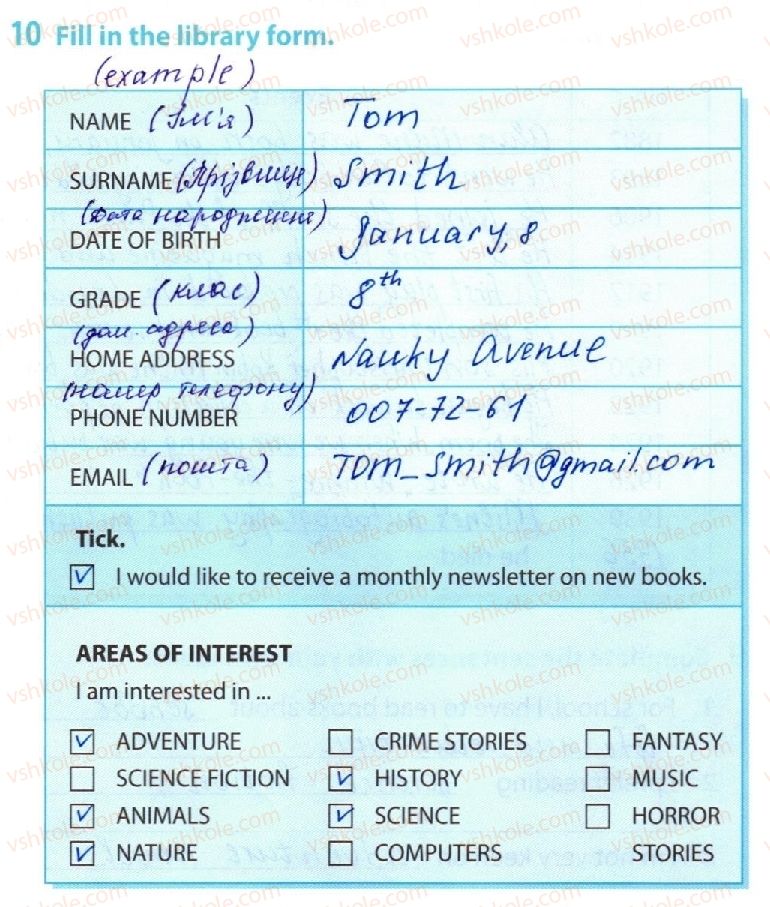 10 Fill in the library form.
(example)
NAME (Ім'я) Tom
SURNAME (Прізвище) Smith
(Дата народження)
DATE OF BIRTH January, 8
GRADE (клас) 8th
(дом. адреса)
HOME ADDRESS Nauky Avenue
(номер телефону)
PHONE NUMBER 007-72-61
EMAIL (пошта) Tom_Smith@gmail.com
Tick.
I would like to receive a monthly newsletter on new books.
AREAS OF INTEREST
I am interested in ...
ADVENTURE CRIME STORIES FANTASY
SCIENCE FICTION HISTORY MUSIC
ANIMALS SCIENCE HORROR
NATURE COMPUTERS STORIES
vshkole.com